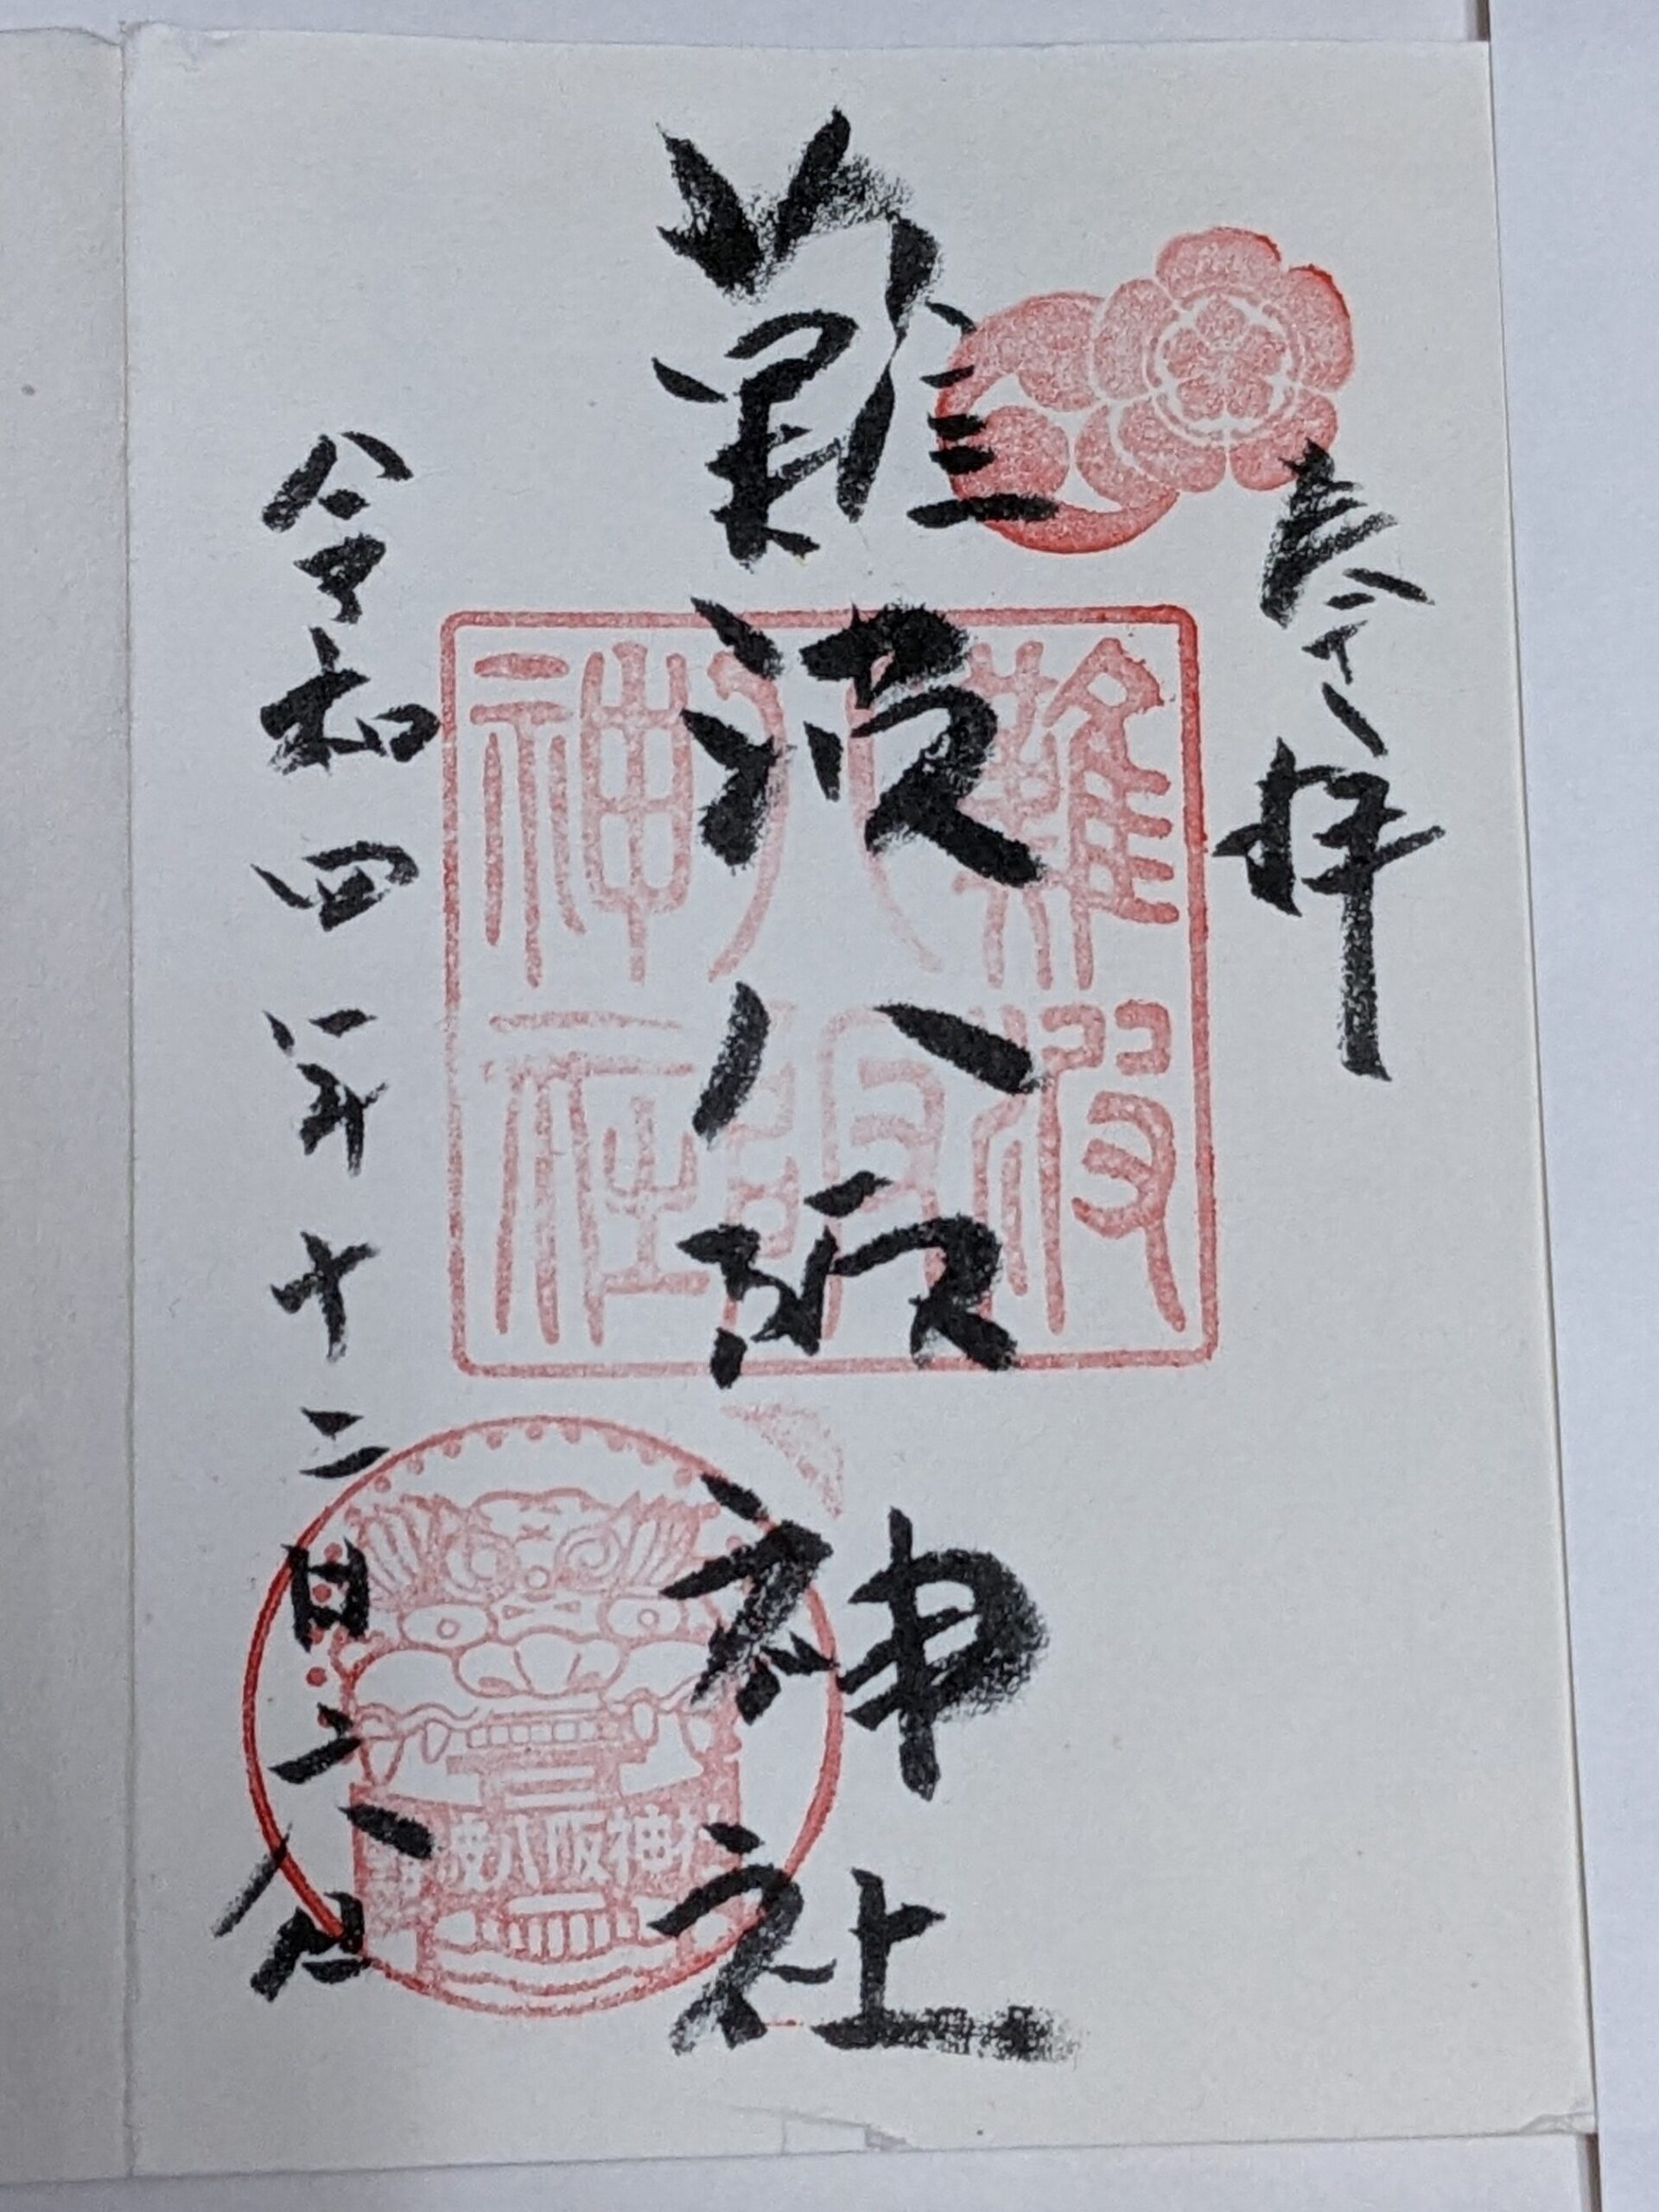 奉拝
難波八阪神社
難波八阪神社
難波八阪神社
令和四年十二月二八日